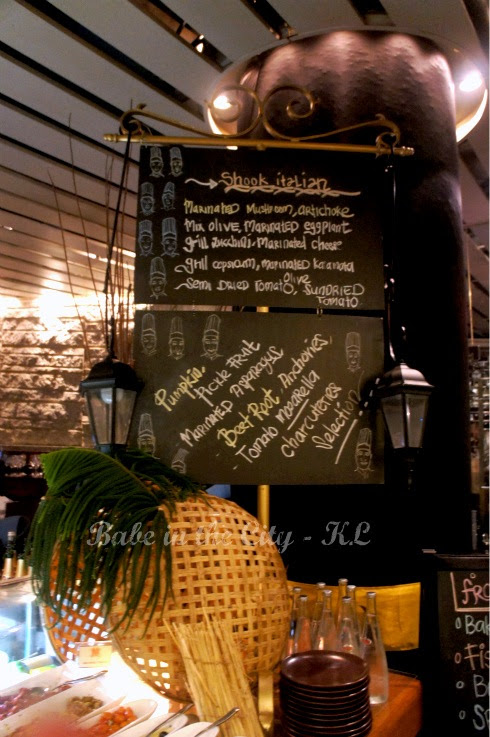 Shook italian
MARINATED MUSHROOM, ARTICHOKE
MIX OLIVE, MARINATED eggplant
grill zucchini, MARINATED cheese
grill capsicum, MARINATED Kalamata
olive
SEMI DRIED TOMATO, SUNDRIED
TOMATO
Pumpkin,
Pickle Fruit
MARINATED Asparagus
BeetRoot Anchovies,
- Tomato mozarella
charcuteries
Selection
Babe in the City - KL